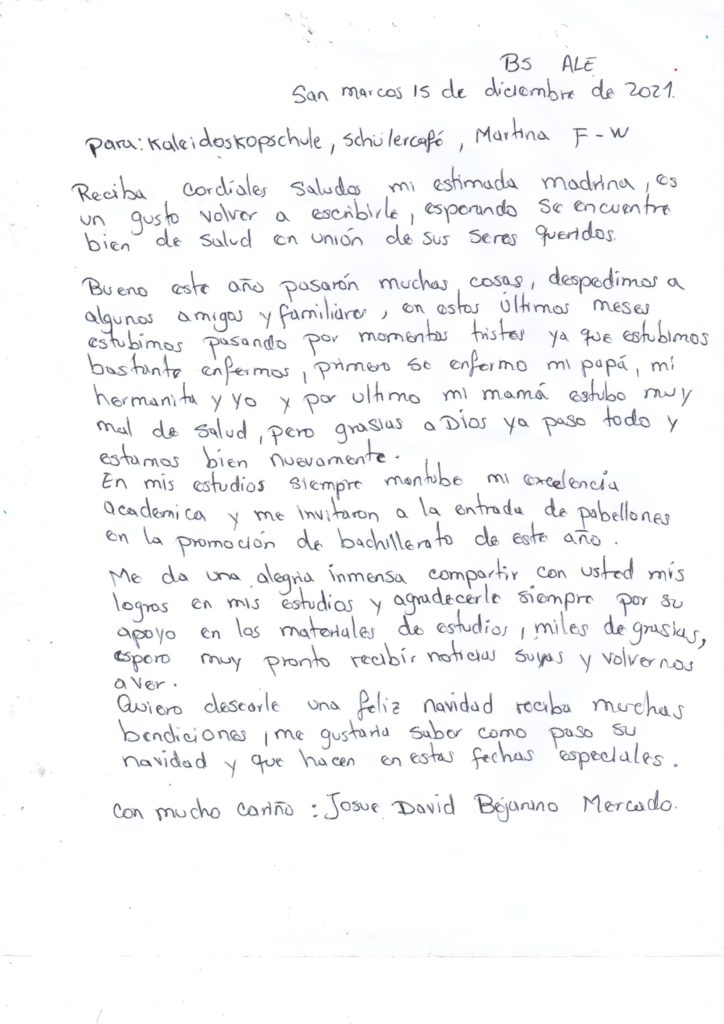 BS ALE
San marcos 15 de diciembre de 2021.
para: Kaleidoskopschule, Schülercafé, Martina F-W
Reciba cordiales saludos mi estimada madrina, es
un gusto volver a escribirle, esperando se encuentre
bien de salud en unión de sus seres queridos.
Bueno este año pasarón muchas cosas, despedimos a
algunos amigos y familiares, en estos últimos meses
estubimos pasando por momentos tristes ya que estubimos
bastante enfermos, primero se enfermo mi papá, mi
hermanita y yo y por ultimo mi mamá estubo muy
mal de salud, pero grasias a Dios ya paso todo y
estamos bien nuevamente.
En mis estudios siempre mantube mi excelencia
academica y me invitaron a la entrada de pabellones
en la promoción de bachillerato de este año.
Me da una alegria inmensa compartir con usted mis
logros en mis estudios y agradecerle siempre por su
apoyo en los materiales de estudios, miles de grasias,
espero muy pronto recibir noticias suyas y volvernos
a ver.
Quiero desearle una feliz navidad reciba muchas
bendiciones, me gustaria saber como paso su
navidad y que hacen en estas fechas especiales.
con mucho cariño: Josue David Bejarano Mercado.